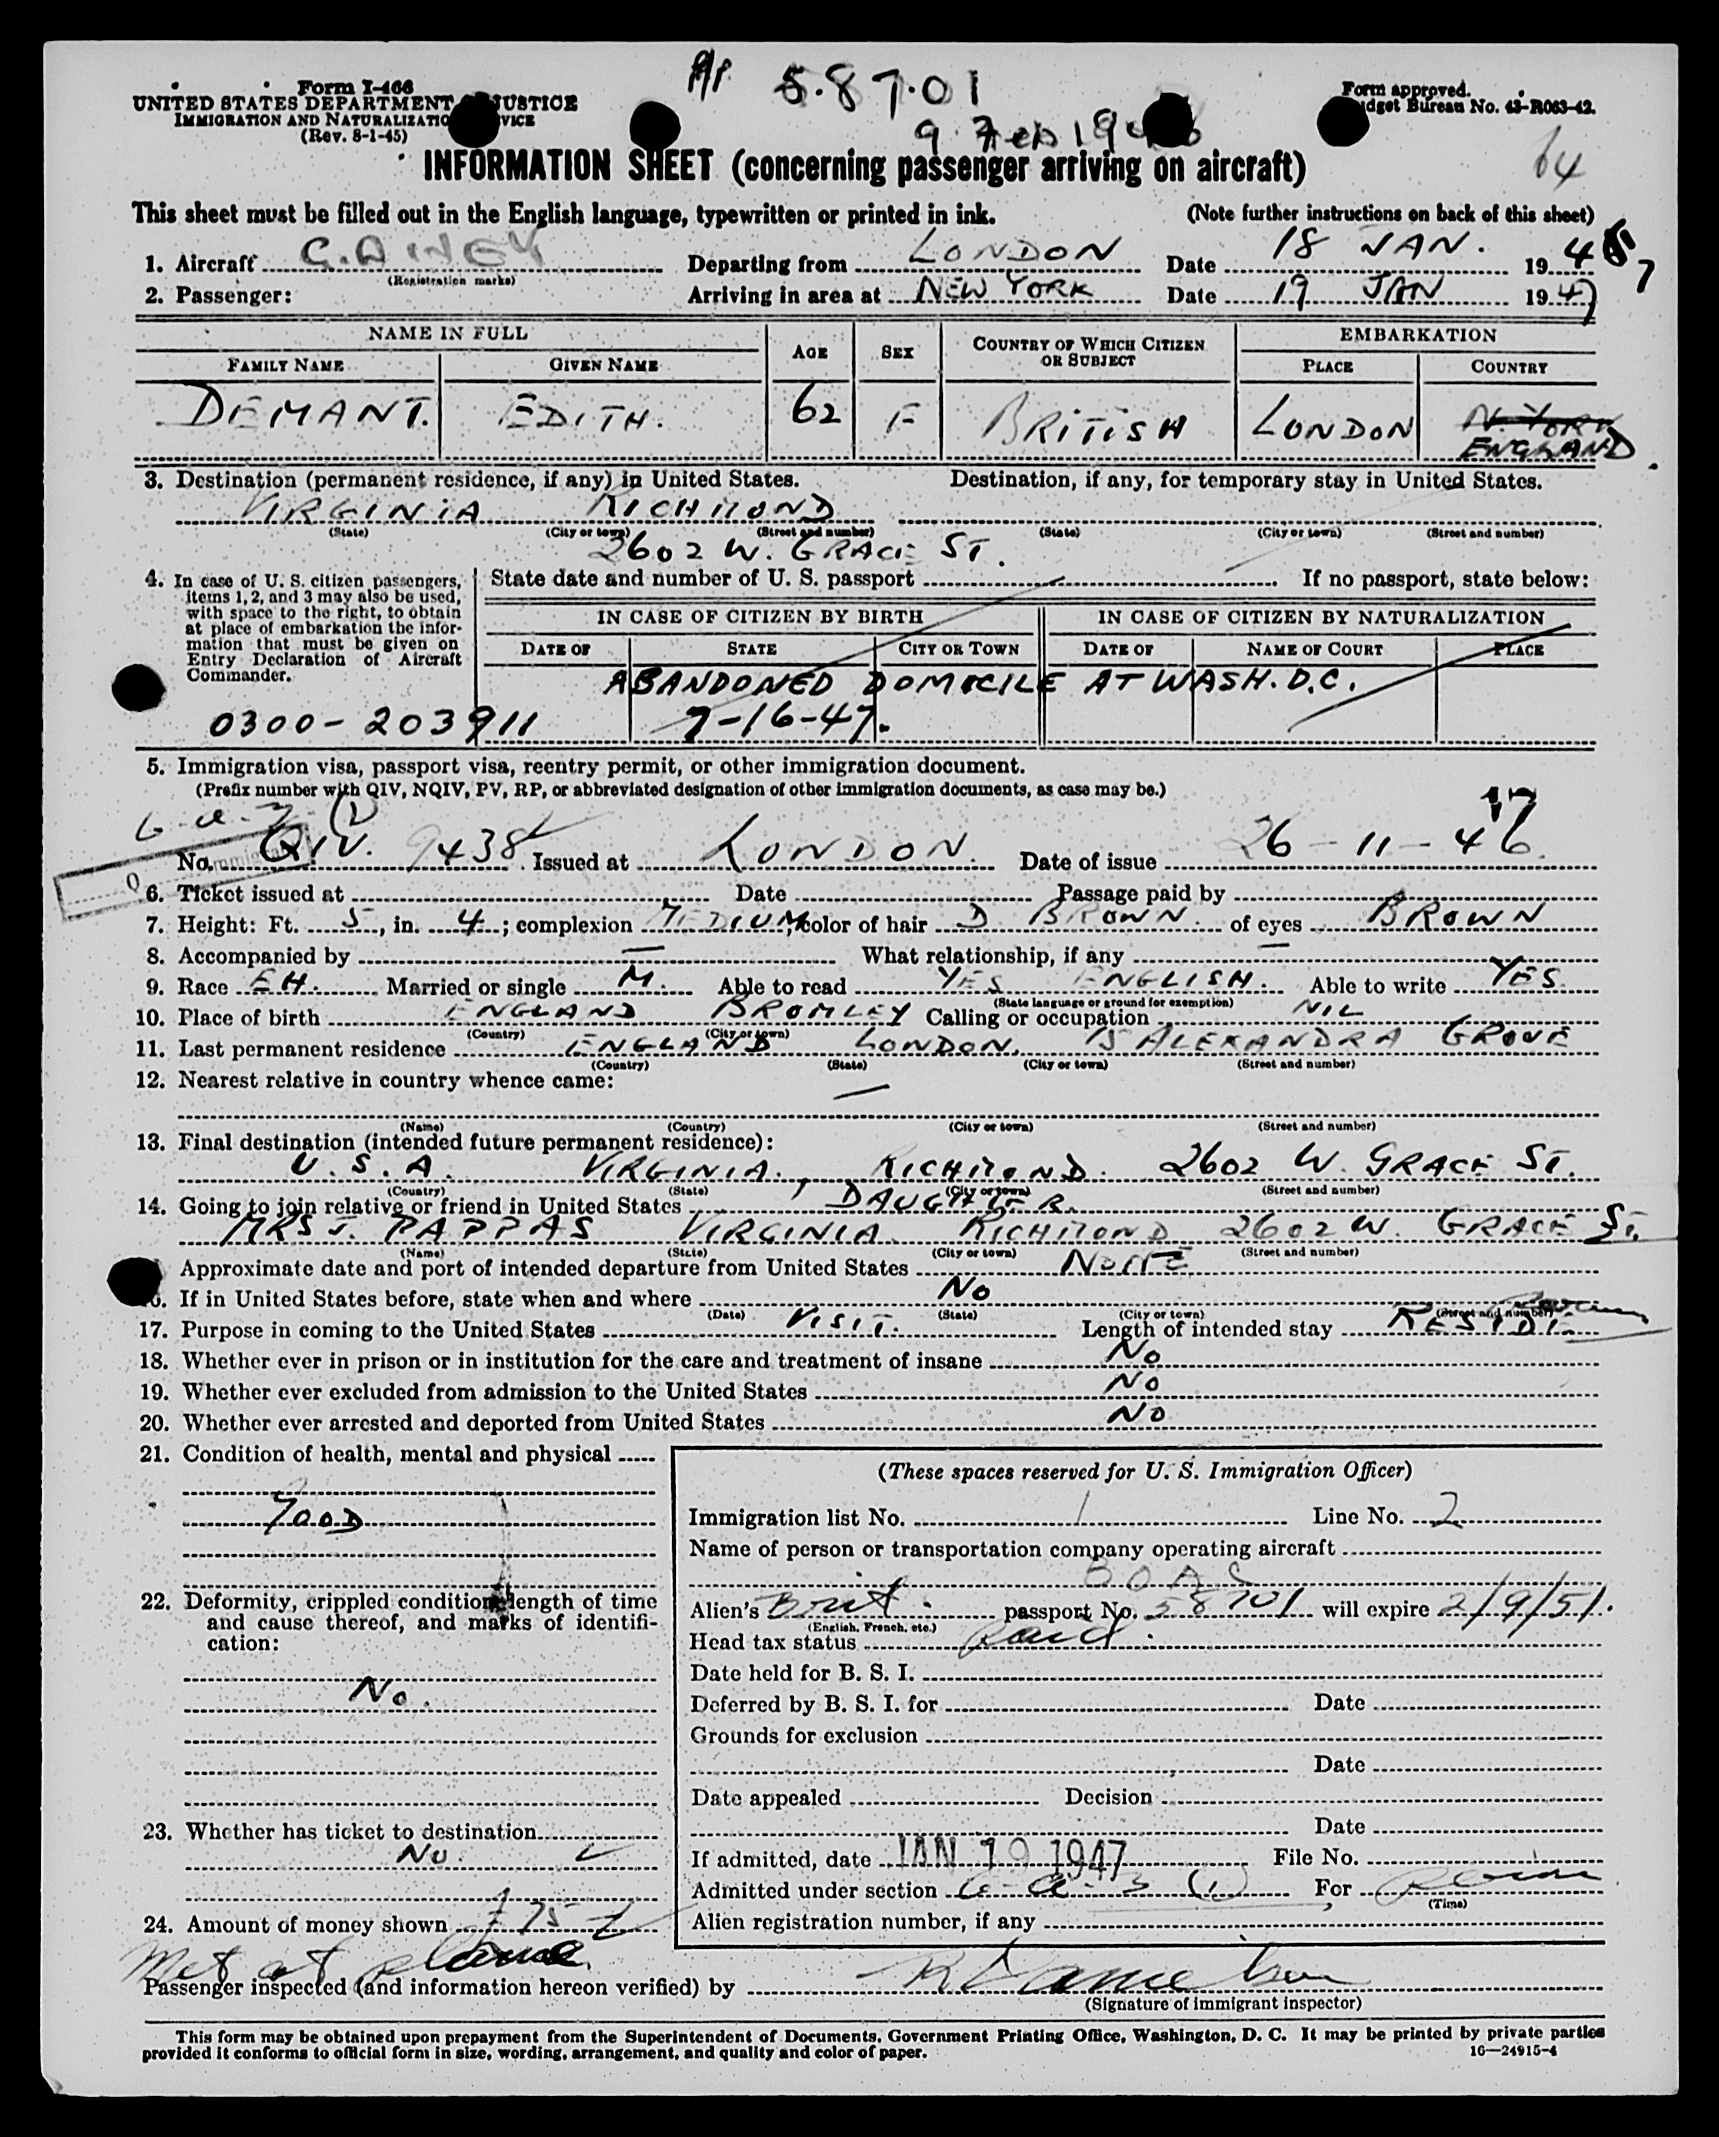 PP. 58701
9 Feb 194
Form I-466
UNITED STATES DEPARTMENT JUSTICE
IMMIGRATION AND NATURALIZATIO VICE
(Rev. 8-1-45)
Form approved.
dget Bureau No. 43-R063-42.
64
INFORMATION SHEET (concerning passenger arriving on aircraft)
This sheet must be filled out in the English language, typewritten or printed in ink. (Note further instructions on back of this sheet)
1. Aircraft G. AHEY Departing from LONDON Date 18 JAN. 19 4 7
(Registration marks)
2. Passenger: Arriving in area at NEW YORK Date 19 JAN 19 47
NAME IN FULL AGE SEX COUNTRY OF WHICH CITIZEN OR SUBJECT EMBARKATION
FAMILY NAME GIVEN NAME PLACE COUNTRY
DEMANT. EDITH. 62 F BRITISH LONDON N. YORK
ENGLAND
3. Destination (permanent residence, if any) in United States. Destination, if any, for temporary stay in United States.
VIRGINIA RICHMOND
(State) (City or town) (Street and number) (State) (City or town) (Street and number)
2602 W. GRACE ST.
4. In case of U. S. citizen passengers, items 1, 2, and 3 may also be used, with space to the right, to obtain at place of embarkation the information that must be given on Entry Declaration of Aircraft Commander.
State date and number of U. S. passport If no passport, state below:
IN CASE OF CITIZEN BY BIRTH IN CASE OF CITIZEN BY NATURALIZATION
DATE OF STATE CITY OR TOWN DATE OF NAME OF COURT PLACE
ABANDONED DOMICILE AT WASH. D.C.
0300-203911 7-16-47.
5. Immigration visa, passport visa, reentry permit, or other immigration document.
(Prefix number with QIV, NQIV, PV, RP, or abbreviated designation of other immigration documents, as case may be.)
6-a-3 (1) 17
No. QIV. 9438 Issued at LONDON. Date of issue 26-11-46
6. Ticket issued at Date Passage paid by
7. Height: Ft. 5, in. 4; complexion MEDIUM; color of hair D BROWN. of eyes BROWN
8. Accompanied by — What relationship, if any —
9. Race EH. Married or single M. Able to read YES ENGLISH. Able to write YES
(State language or ground for exemption)
10. Place of birth ENGLAND BROMLEY Calling or occupation NIL
(Country) (City or town)
11. Last permanent residence ENGLAND LONDON. 15 ALEXANDRA GROVE
(Country) (State) (City or town) (Street and number)
12. Nearest relative in country whence came: —
(Name) (Country) (City or town) (Street and number)
13. Final destination (intended future permanent residence):
U.S.A. VIRGINIA. RICHMOND. 2602 W. GRACE ST.
(Country) (State) (City or town) (Street and number)
14. Going to join relative or friend in United States DAUGHTER.
MRS J. PAPPAS VIRGINIA. RICHMOND 2602 W. GRACE ST.
(Name) (State) (City or town) (Street and number)
Approximate date and port of intended departure from United States NONE
6. If in United States before, state when and where NO
(Date) (State) (City or town) (Street and number)
17. Purpose in coming to the United States VISIT. Length of intended stay RESIDE
18. Whether ever in prison or in institution for the care and treatment of insane NO
19. Whether ever excluded from admission to the United States NO
20. Whether ever arrested and deported from United States NO
21. Condition of health, mental and physical
GOOD
22. Deformity, crippled condition, length of time and cause thereof, and marks of identification:
No.
23. Whether has ticket to destination
No.
24. Amount of money shown £75
(These spaces reserved for U. S. Immigration Officer)
Immigration list No. 1 Line No. 2
Name of person or transportation company operating aircraft
BOAC
Alien's Brit. passport No. 58701 will expire 2/9/51.
(English, French, etc.)
Head tax status Paid.
Date held for B. S. I.
Deferred by B. S. I. for Date
Grounds for exclusion
Date
Date appealed Decision
Date
If admitted, date JAN 19 1947 File No.
Admitted under section 6-a-3 (1) For
(Time)
Alien registration number, if any
Met at plane
Passenger inspected (and information hereon verified) by
(Signature of immigrant inspector)
This form may be obtained upon prepayment from the Superintendent of Documents, Government Printing Office, Washington, D. C. It may be printed by private parties
provided it conforms to official form in size, wording, arrangement, and quality and color of paper. 16—24915-4